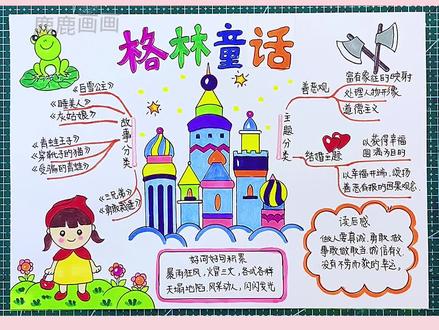 鹿鹿画画
格林童话
《白雪公主》
《睡美人》
《灰姑娘》
《青蛙王子》
《穿靴子的猫》
《受骗的青蛙》
《三兄弟》
《勇敢裁缝》
故事分类
主题分类
善恶观
富有象征的映射
处理人物形象
道德主义
结婚主题
以获得幸福
圆满为目的
以幸福开端,颂扬
善恶有报的因果观念
好词好句积累
暴雨狂风,火冒三丈,各式各样
天塌地陷,风华动人,闪闪发光
读后感
做人要真诚,勇敢,做
事敢做敢当,诚信有义,
没有不劳而获的幸运。